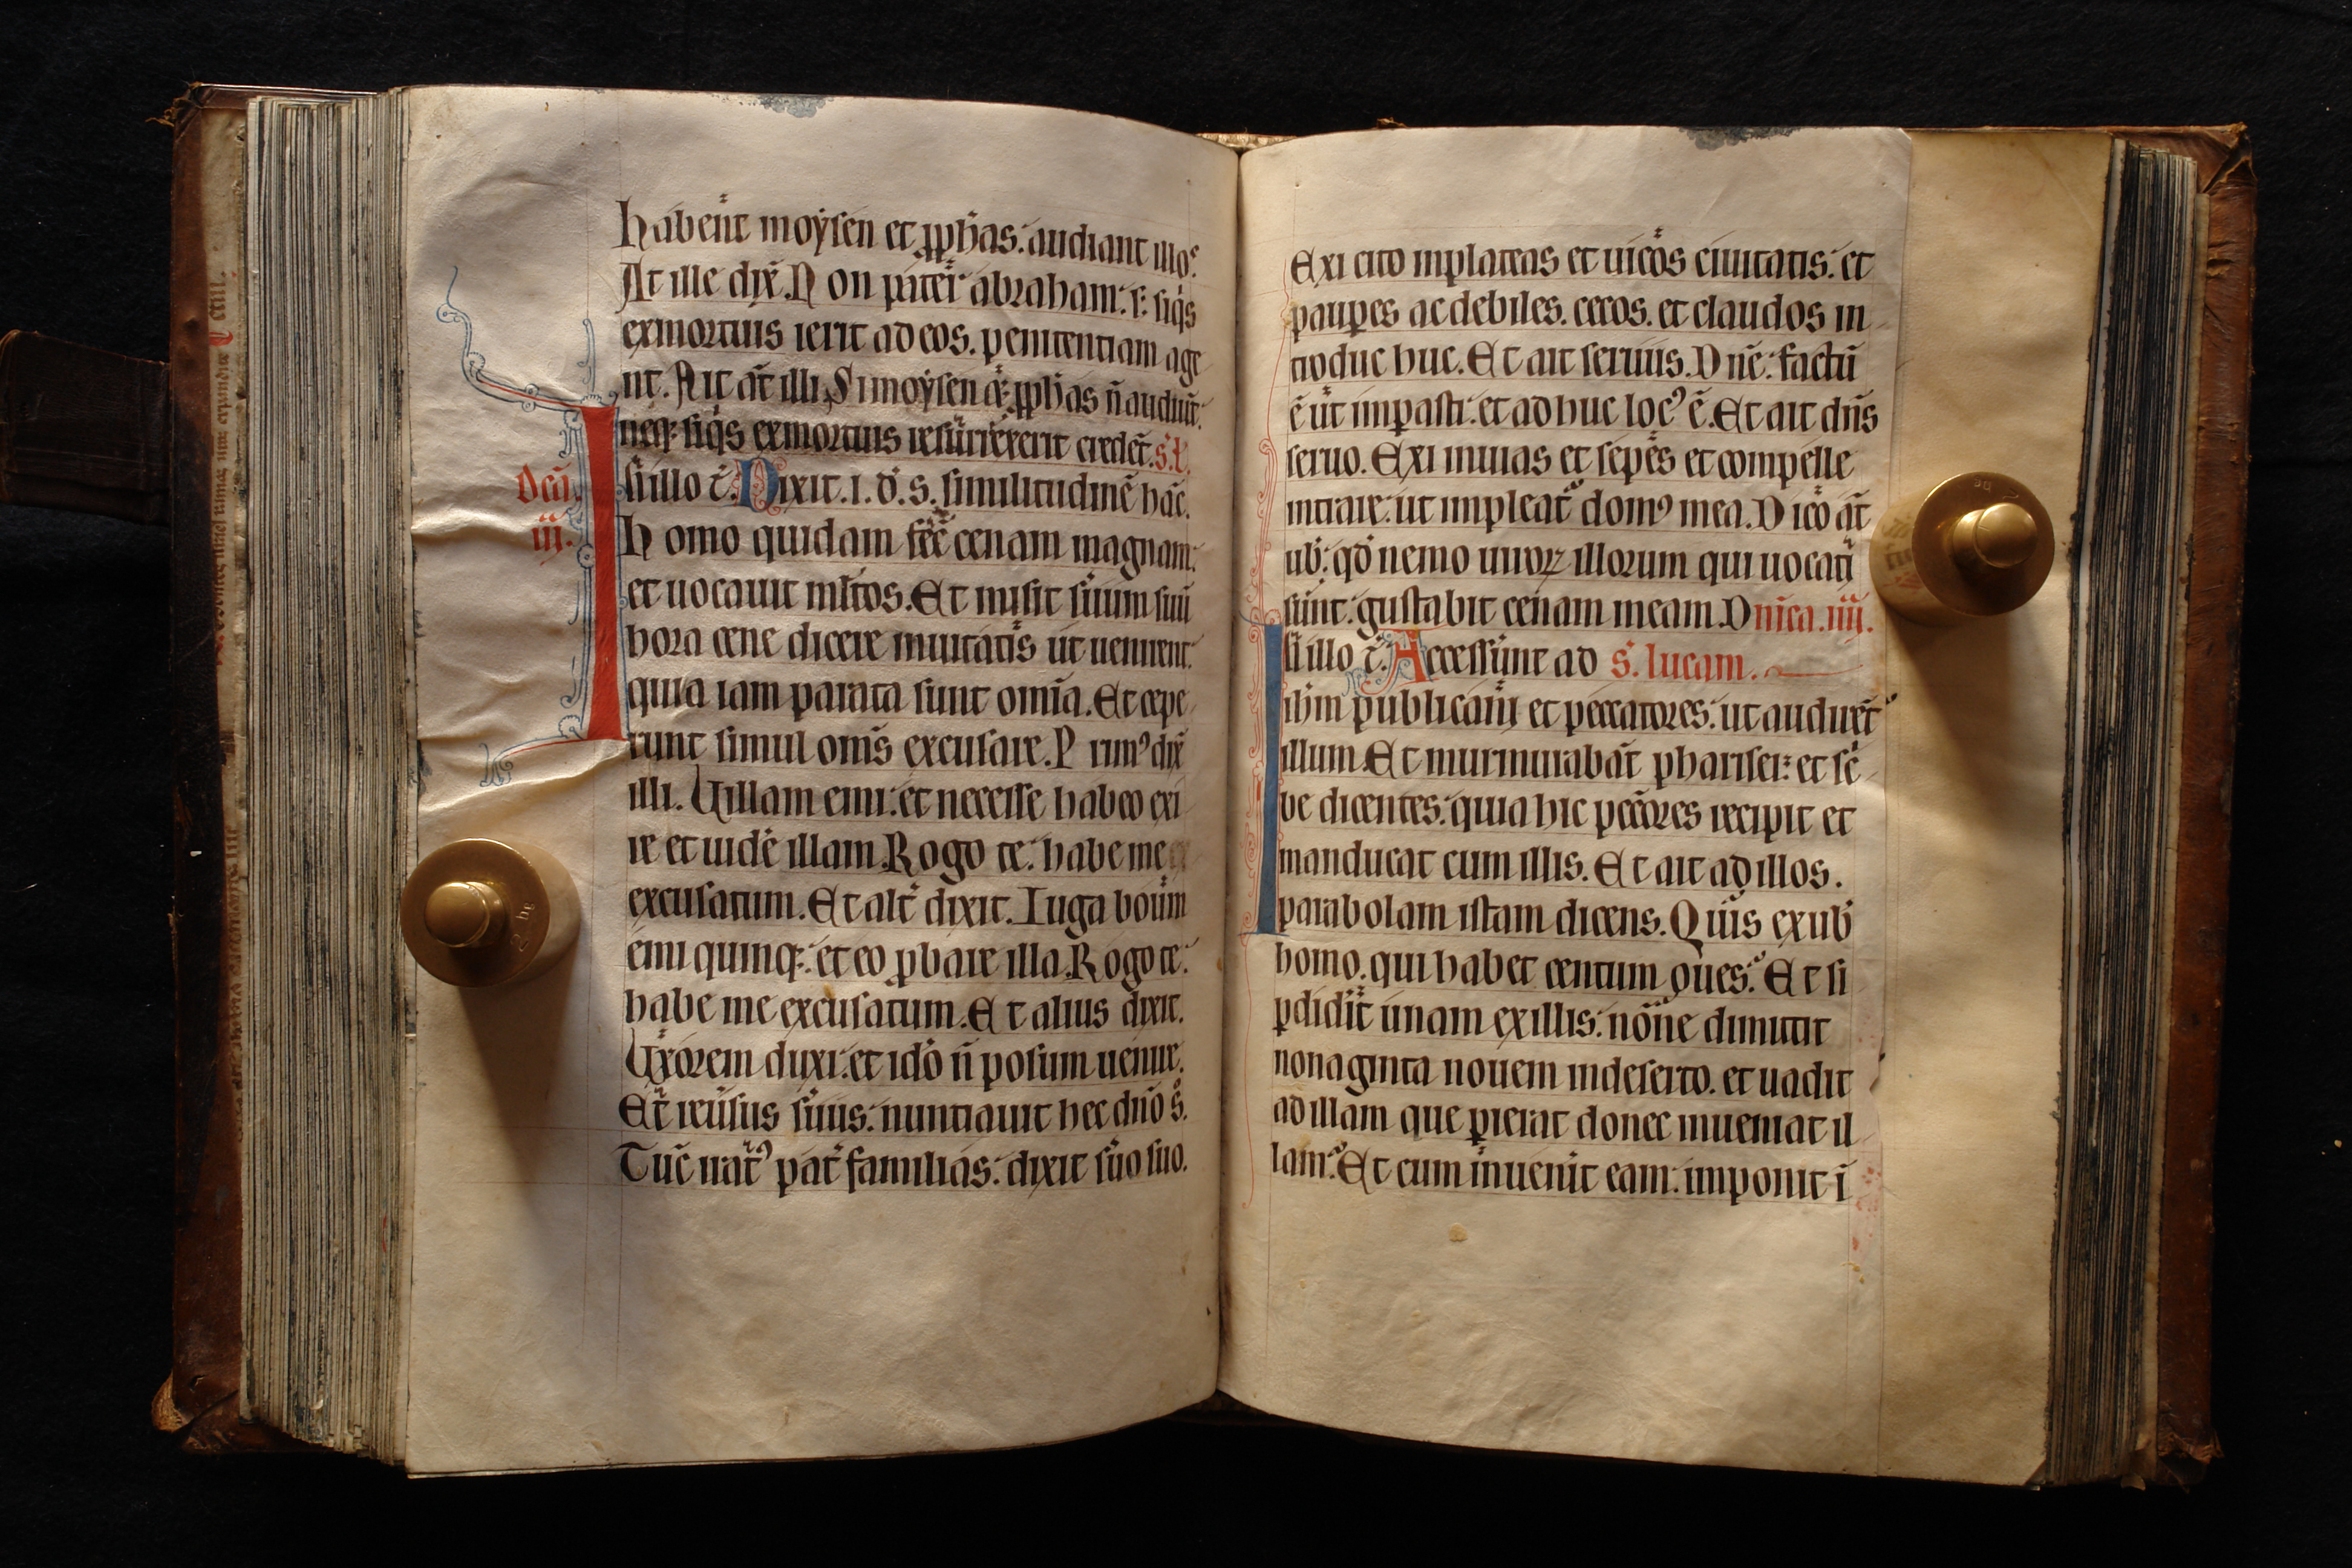 habent̄ moẏsen et ꝓph̄as. audiant illos.
At ille dix̄. Non pater abraham. s: siqͥs
exmortuis ierit ad eos. penitentiam age
nt. Ait āt illi. Si moẏsen &̄ ꝓph̄as n̄ audiūt.
neqꝫ siqͥs exmortuis resurrexerit credēt. s. l.
Dcā.
iij.
In illo t̄. Dixit. i. d̄. s. similitudinē hāc.
Homo quidam fec̄ cenam magnam.
et uocauit ml̄tos. Et misit s̄uum suū
hora cene dicere inuitatis ut uenirent.
quia iam parata sunt om̄ia. Et cepe
runt simul om̄s excusare. Primꝰ dix̄
illi. Uillam emi. et necesse habeo exi
re et uidē illam. Rogo te. habe me
excusatum. Et alt̄ dixit. Iuga boum
emi quinqꝫ. et eo ꝓbare illa. Rogo te.
habe me excusatum. Et alius dixit.
Uxorem duxi. et idō n̄ possum uenire.
Et̄ reūsus s̄uus. nuntiauit hec dn̄o s.
Tūc irat̄ꝰ pat̄ familias. dixit s̄uo suo.
Exi cito inplateas et uicos ciuitatis. et
pauꝑes ac debiles. cecos. et claudos in
troduc huc. Et ait seruus. Dn̄e. factū
ē ut imperasti. et adhuc locꝰ ē. Et ait dn̄s
seruo. Exi inuias et sepes et compelle
intrare. ut impleat̄ domꝰ mea. Dico āt
uob̄. qd̄ nemo uiroꝝ illorum qui uocati
sunt. gustabit cenam meam. Dn̄ica. iiij.
In illo t̄. Accesserunt ad s̄. lucam.
ih̄m publicani et peccatores. ut audirēt
illum. Et murmurabāt pharisei. et sc̄
be dicentes. quia hic pecc̄ores recipit et
manducat cum illis. Et ait ad illos.
parabolam istam dicens. Quis exuob̄
homo. qui habet centum oues. Et si
ꝑdidit̄ unam exillis. nōne dimittit
nonaginta nouem indeserto. et uadit
ad illam que ꝑierat donec inueniat il
lam. Et cum inuenit̄ eam. imponit ī